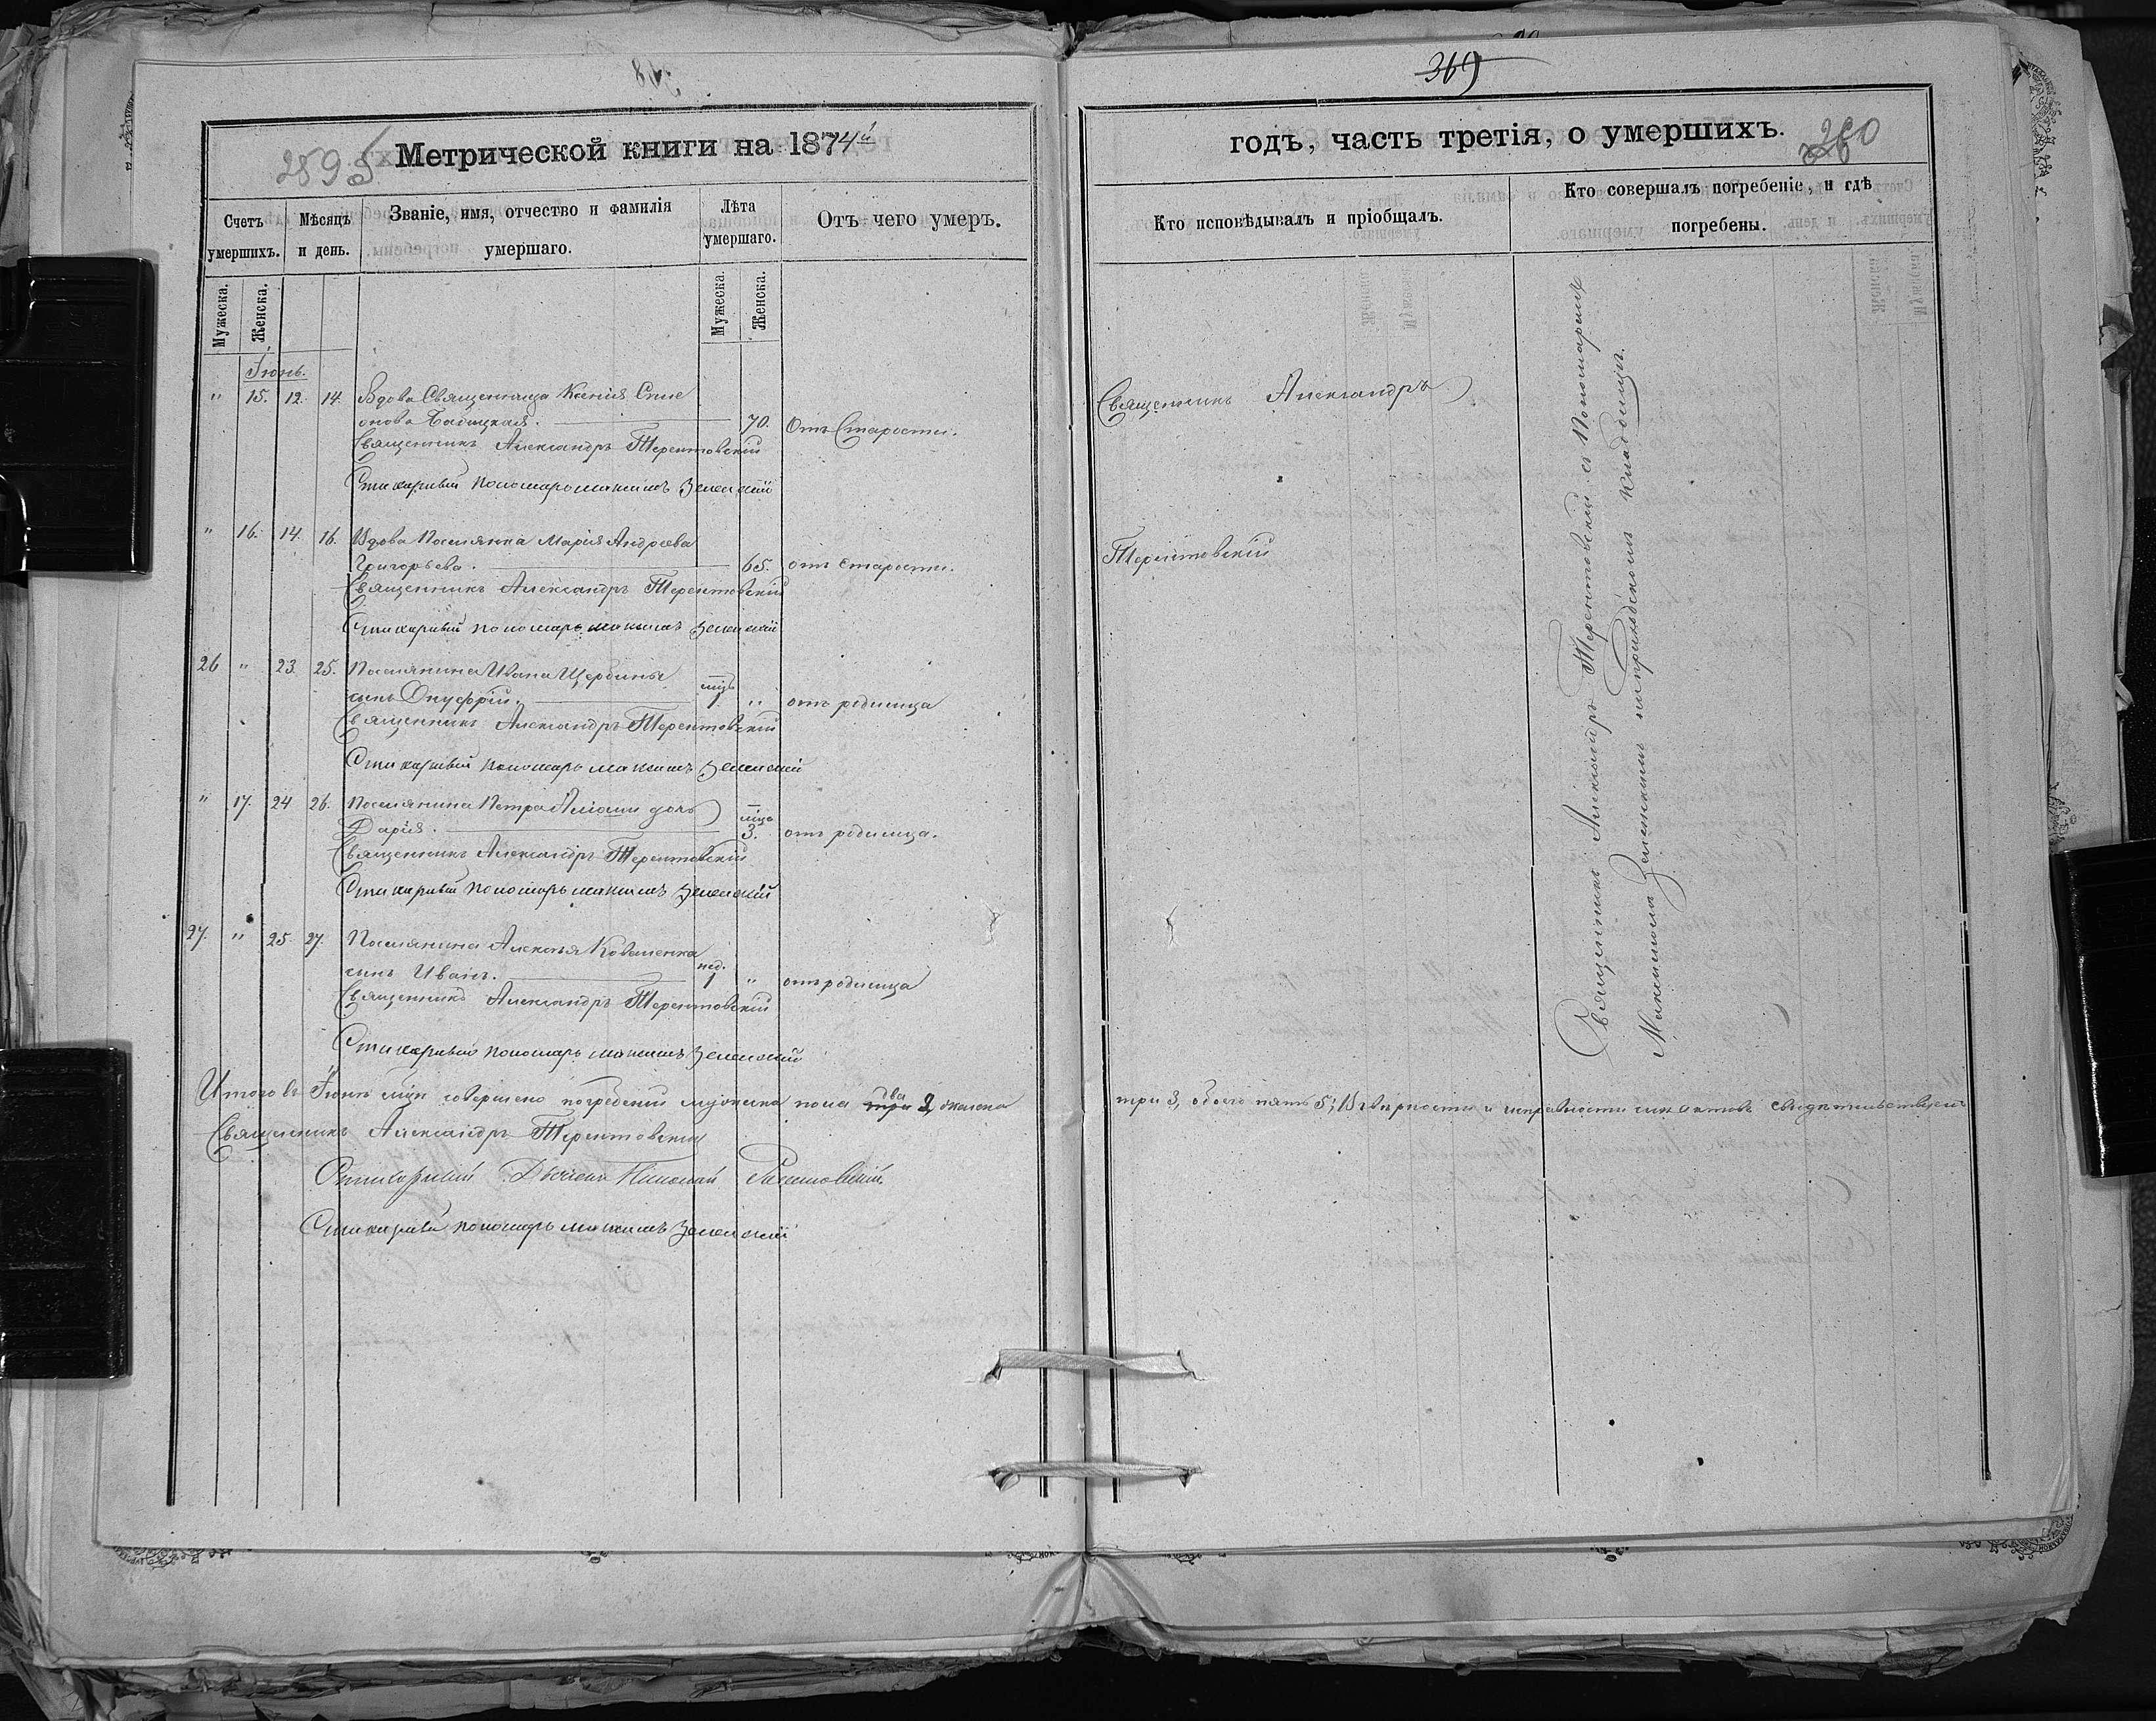 Метрической книги на 1874й
Счетъ умершихъ.
Мѣсяцъ и день.
Званіе, имя, отчество и фамилія умершаго.
Лѣта умершаго.
Отъ чего умеръ.
Мужеска.
Женска.
Мужеска.
Женска.
Іюнь.
" 15. 12. 14. Вдова Священница Ксенія
70. Отъ Старости.
Священникъ Александръ Терентовскій
Стихарный пономарь Максимъ Зеленскій
" 16. 14. 16. Вдова Поселянка Марія Андреева
Григорьева. 65. отъ старости.
Священникъ Александръ Терентовскій
Стихарный пономарь Максимъ Зеленскій
26 " 23. 25. Поселянина Ивана Щербины
сынъ Онуфрій. 1 " отъ родимца
Священникъ Александръ Терентовскій
Стихарный пономарь Максимъ Зеленскій
" 17. 24 26. Поселянина Петра дочь
Дарія. 3. отъ родимца.
Священникъ Александръ Терентовскій
Стихарный пономарь Максимъ Зеленскій
27. " 25. 27. Поселянина Алексѣя Коваленка
сынъ Иванъ. нед. 1 " отъ родимца
Священникъ Александръ Терентовскій
Стихарный пономарь Максимъ Зеленскій
Итого въ Іюнѣ мцѣ совершено погребеній мужеска пола два 2, женска
Священникъ Александръ Терентовскій
Стихарный Дьячекъ Николай
Стихарный пономарь Максимъ Зеленскій
369
годъ, часть третія, о умершихъ.
260
Кто исповѣдывалъ и пріобщалъ.
Кто совершалъ погребеніе, и гдѣ погребены.
Священникъ Александръ
Терентовскій
Священникъ Александръ Терентовскій съ Пономаремъ
Максимомъ Зеленскимъ на приходскомъ кладбищѣ.
три 3, обоего пять 5; Въ вѣрности и исправности сихъ актовъ свидѣтельствуемъ